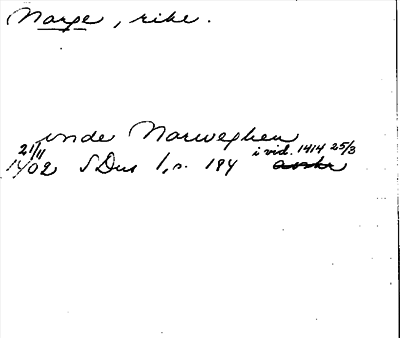 Norge, rike.
unde Norweghen
21/11 i vid. 1414 25/3
1402 SDns 1, s. 184